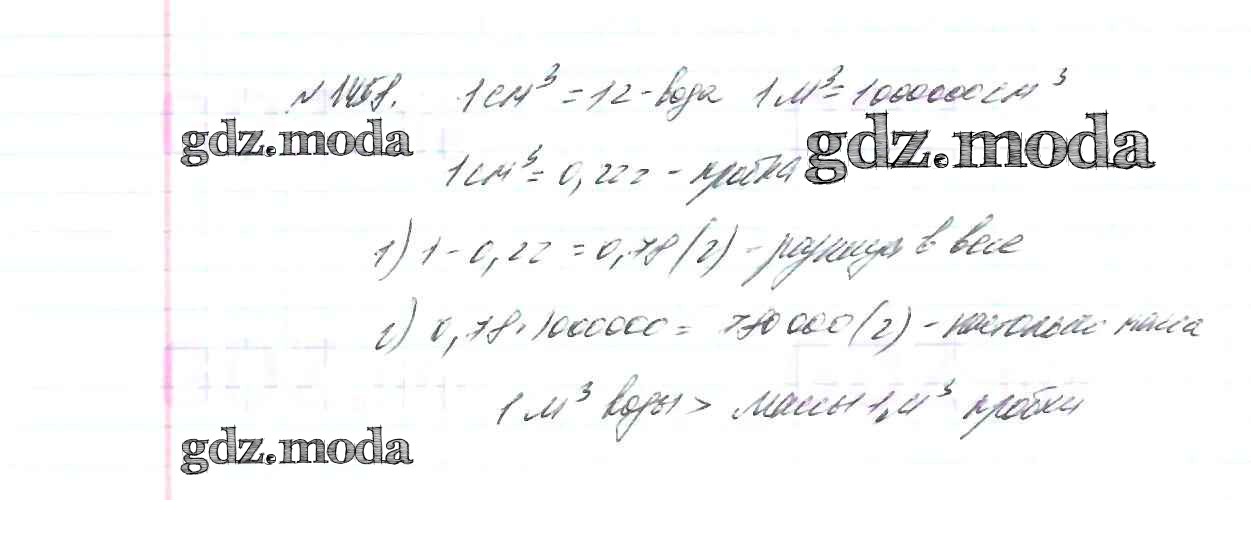 №1458. 1см³=1г-вода 1м³=1000000см³
gdz.moda gdz.moda
1см³=0,22г-пробка
1) 1-0,22=0,78(г)-разница в весе
2) 0,78·1000000=780000(г)-настолько масса
1м³ воды> массы 1м³ пробки
gdz.moda